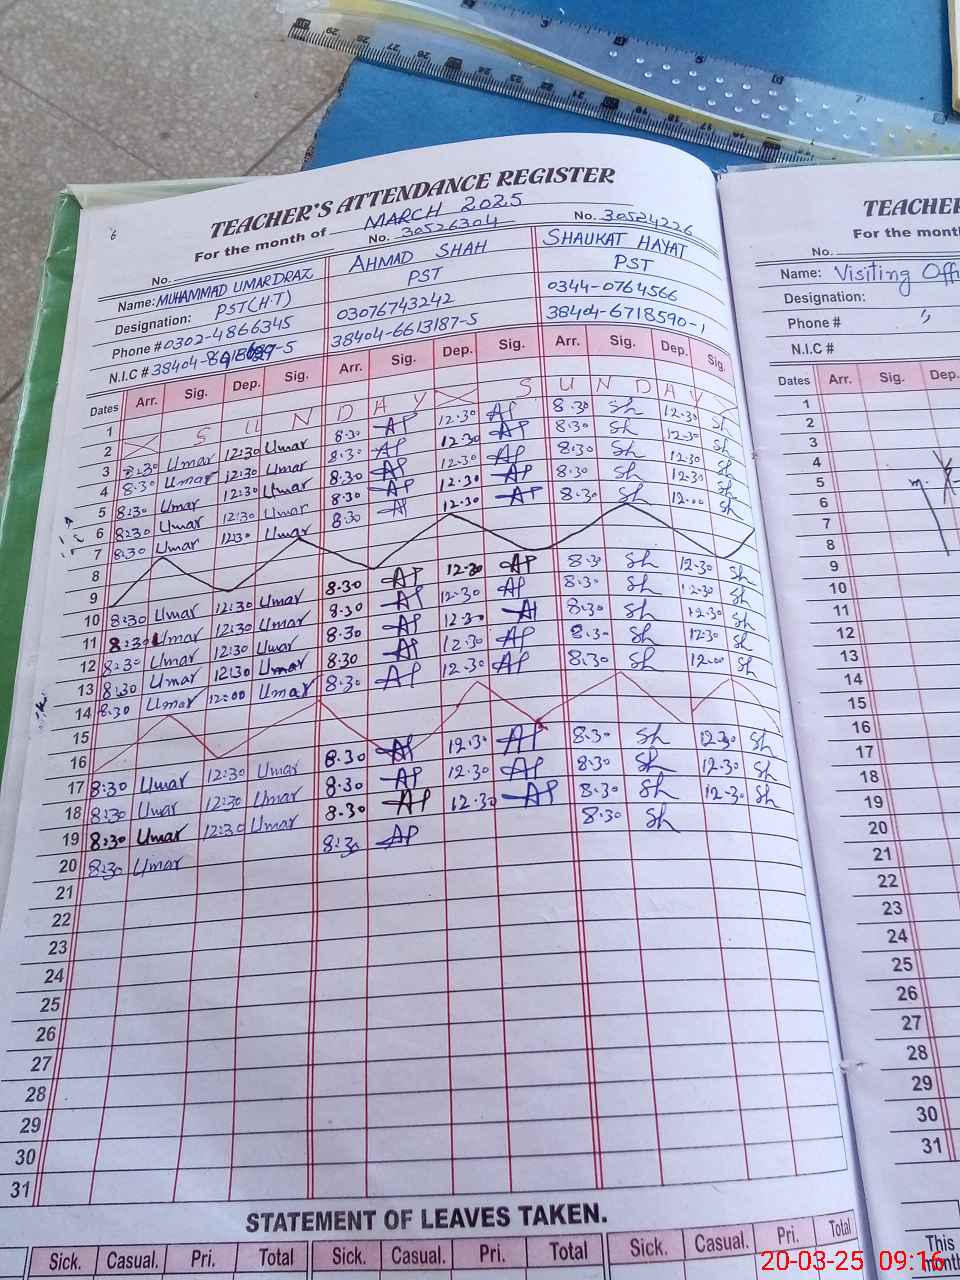 6
TEACHER'S ATTENDANCE REGISTER
For the month of MARCH 2025
No. No. 30526304 No. 30524226
Name: MUHAMMAD UMAR DRAZ AHMAD SHAH SHAUKAT HAYAT
Designation: PST(H.T) PST PST
Phone # 0302-4866345 03076743242 0344-0764566
N.I.C # 38404-6613187-5 38404-6718590-1
Dates Arr. Sig. Dep. Sig. Arr. Sig. Dep. Sig. Arr. Sig. Dep. Sig.
1
2 S U N D A Y S U N D A Y
3 8:30 Umar 12:30 Umar 8.30 AP 12.30 AP 8.30 Sh 12.30 Sh
4 8:30 Umar 12:30 Umar 8.30 AP 12.30 AP 8.30 Sh 12.30 Sh
5 8:30 Umar 12:30 Umar 8.30 AP 12.30 AP 8.30 Sh 12.30 Sh
6 8:30 Umar 12:30 Umar 8.30 AP 12.30 AP 8.30 Sh 12.30 Sh
7 8:30 Umar 12:30 Umar 8.30 AP 12.30 AP 8.30 Sh 12.00 Sh
8
9
10 8:30 Umar 12:30 Umar 8.30 AP 12.30 AP 8.30 Sh 12.30 Sh
11 8:30 Umar 12:30 Umar 8.30 AP 12.30 AP 8.30 Sh 12.30 Sh
12 8:30 Umar 12:30 Umar 8.30 AP 12.30 AP 8.30 Sh 12.30 Sh
13 8:30 Umar 12:30 Umar 8.30 AP 12.30 AP 8.30 Sh 12.30 Sh
14 8:30 Umar 12:00 Umar 8.30 AP 12.30 AP 8.30 Sh 12.00 Sh
15
16
17 8:30 Umar 12:30 Umar 8.30 AP 12.30 AP 8.30 Sh 12.30 Sh
18 8:30 Umar 12:30 Umar 8.30 AP 12.30 AP 8.30 Sh 12.30 Sh
19 8:30 Umar 12:30 Umar 8.30 AP 12.30 AP 8.30 Sh 12.30 Sh
20 8:30 Umar 8.30 AP 8.30 Sh
21
22
23
24
25
26
27
28
29
30
31
STATEMENT OF LEAVES TAKEN.
Sick. Casual. Pri. Total Sick. Casual. Pri. Total Sick. Casual. Pri. Total
TEACHER
For the month
No.
Name: Visiting Offi
Designation:
Phone #
N.I.C #
Dates Arr. Sig. Dep.
1
2
3
4
5
6
7
8
9
10
11
12
13
14
15
16
17
18
19
20
21
22
23
24
25
26
27
28
29
30
31
This
month
20-03-25 09:16